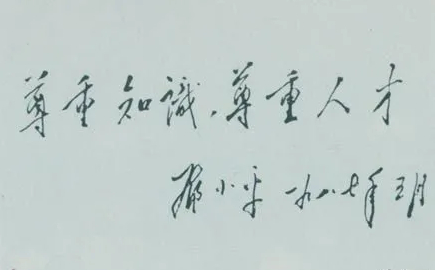 尊重知識，尊重人才
鄧小平 一九八七年三月